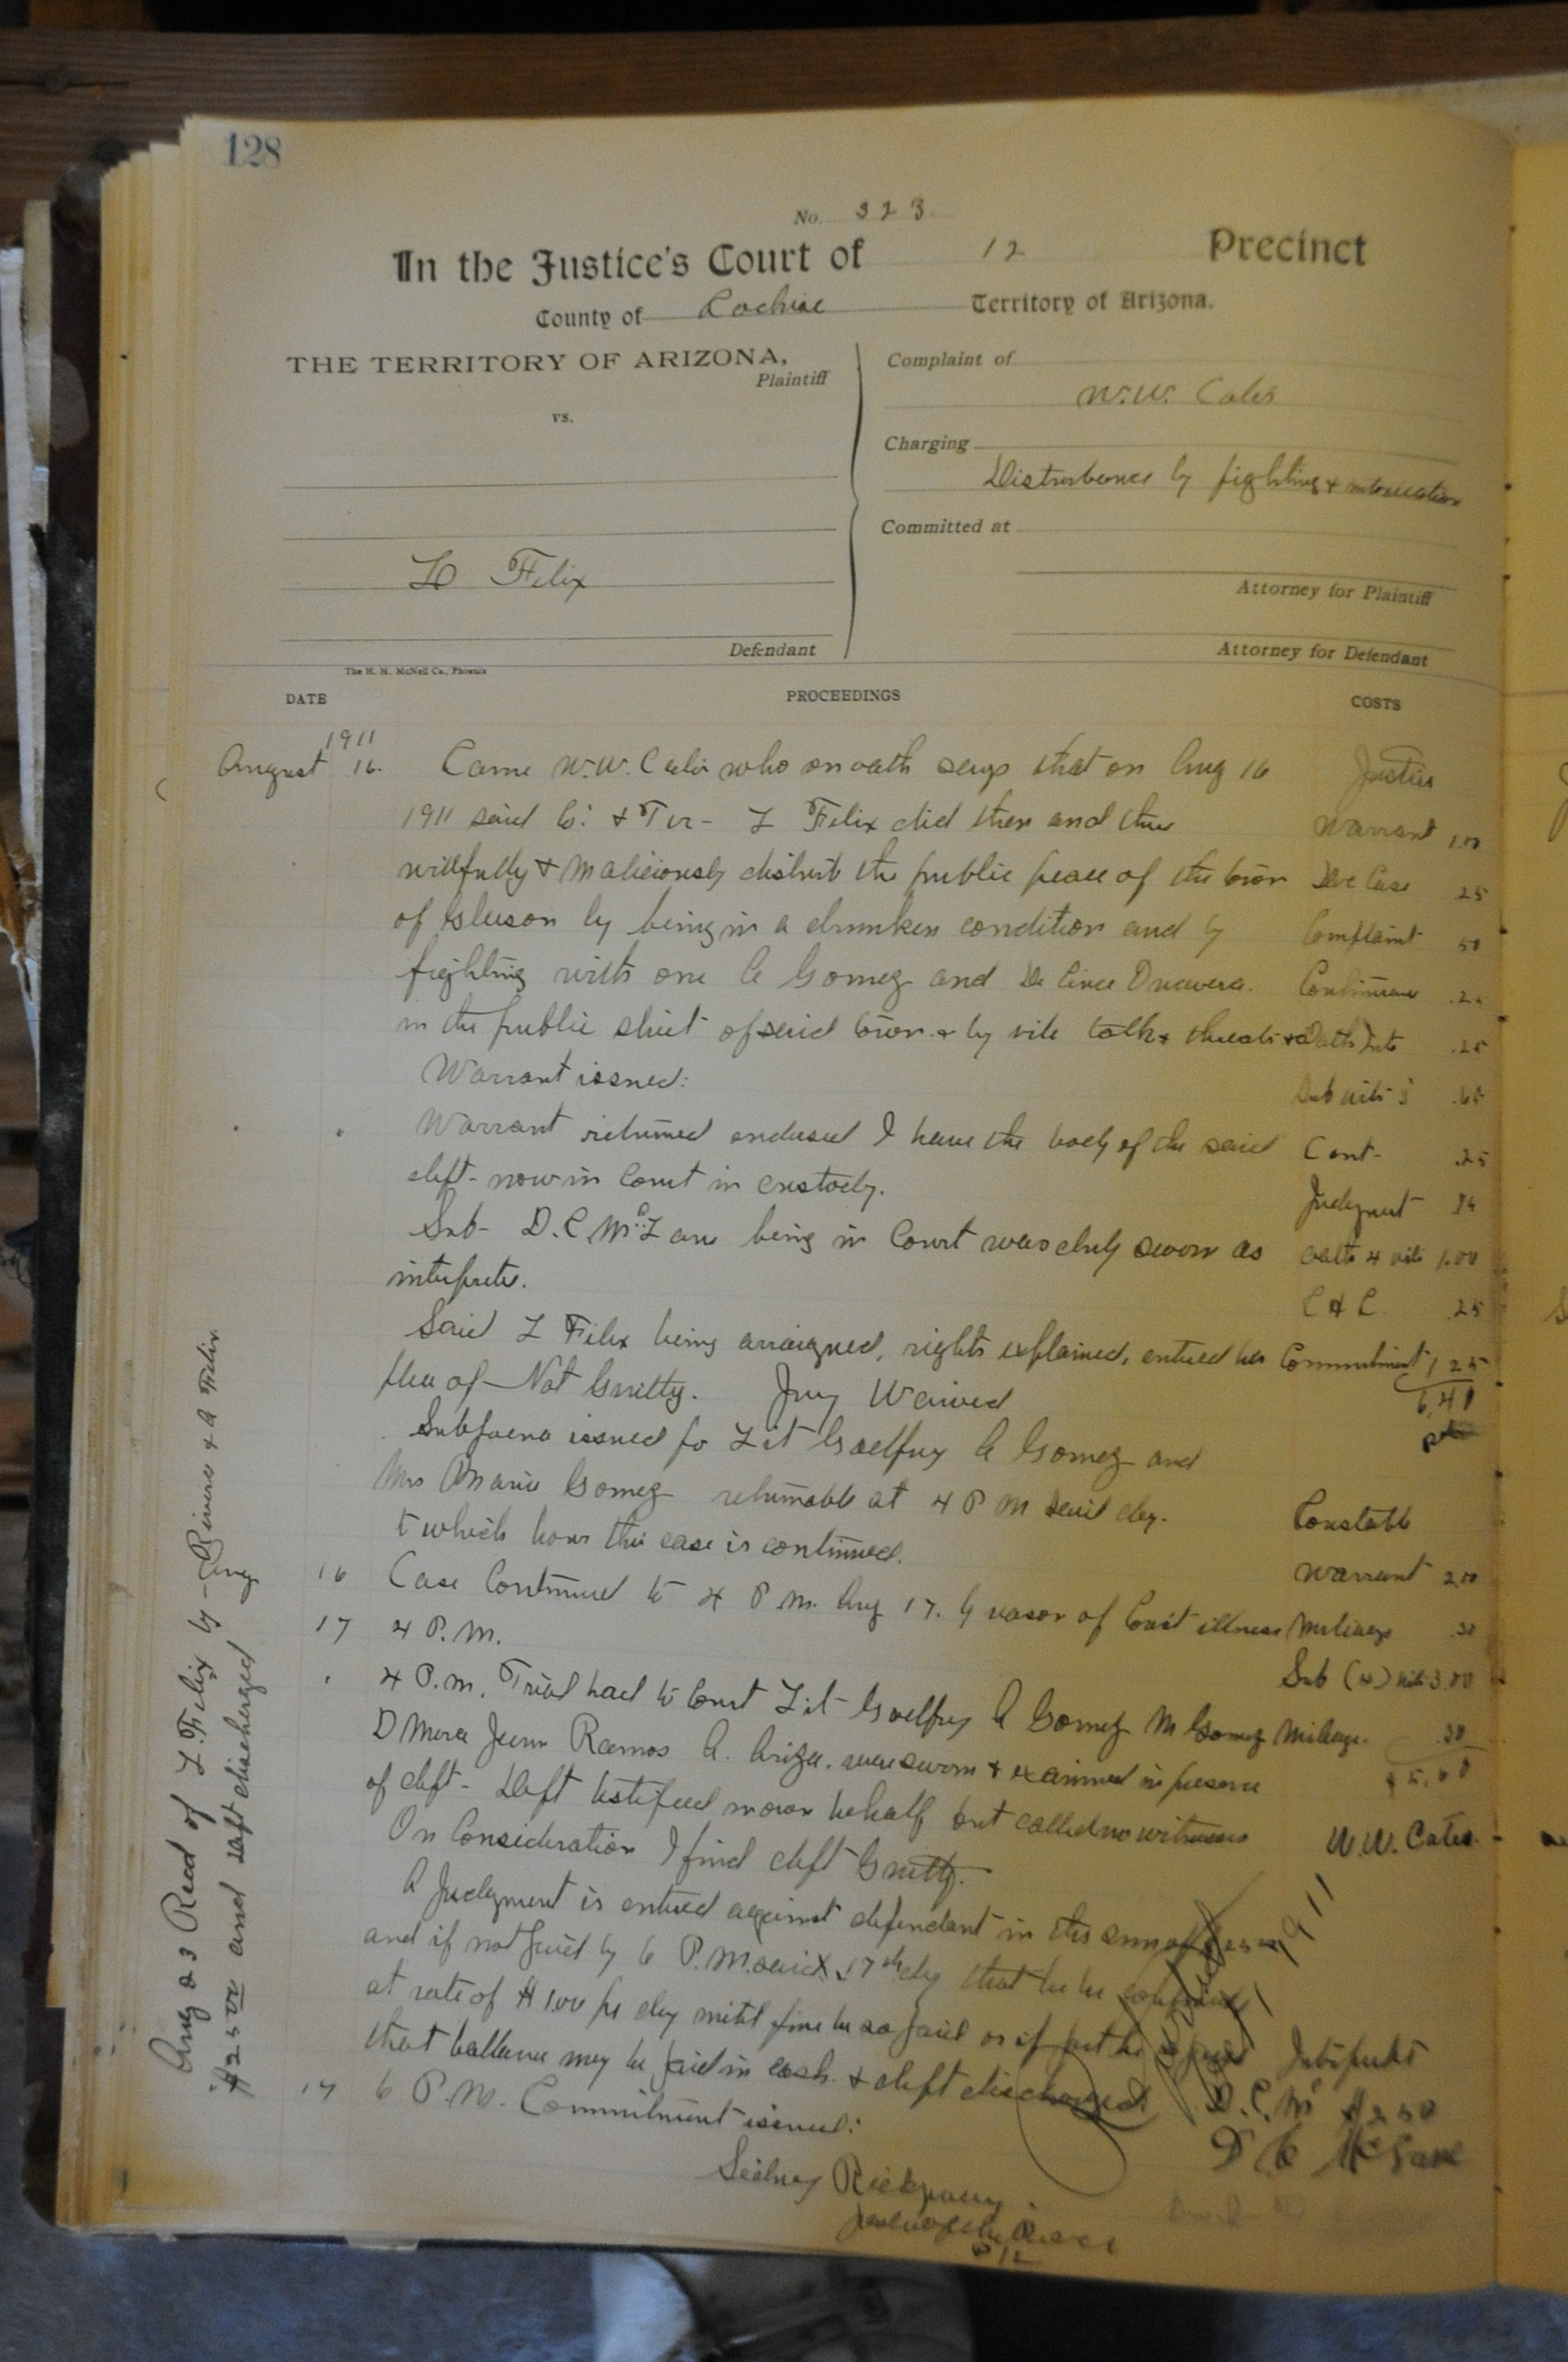 128
No. 323
In the Justice's Court of 12 Precinct
County of Cochise Territory of Arizona.
THE TERRITORY OF ARIZONA,
Plaintiff
vs.
L Felix
Defendant
Complaint of
W.W. Cates
Charging
Disturbance by fighting & intoxication
Committed at
Attorney for Plaintiff
Attorney for Defendant
The H. H. McNeil Co., Phoenix
DATE PROCEEDINGS COSTS
1911
August 16. Came W.W. Cates who on oath says that on Aug 16 Justice
1911 said Co. & Ter- L Felix did then and there Warrant 1.00
willfully & maliciously disturb the public peace of the town Case 25
of Gleeson by being in a drunken condition and by Complaint 50
fighting with one A Gomez and in the public street of said town & by vile talk & threats
Continuance
Oath .25
Warrant issued: .65
Warrant returned endused I have the body of the said Cont- .25
deft- now in Court in custody. Judgment
Sub- D.C. McLane being in Court was duly sworn as oath 4 wits 1.00
interpreter. .25
Said L Felix being arraigned, rights explained, entered his Commitment 1 25
plea of- Not Guilty. Jury Waived 6.40
Subpoena issued fo A Gomez and
Mrs Maria Gomez returnable at 4 P M said day.
t which hour this case is continued. Constable
16 Case Continued to 4 P.M. Aug 17. by reason of Court illness Warrant 2.00
17 4 P.M. Mileage .30
4 P.m. Trial had to Court A Gomez M Gomez Sub (4) wit 3.00
Mileage. .30
D Mera Juan Ramos A. Ariza. were sworn & examined in presence $5.60
of deft- Deft testified in own behalf but called no witnesses
On Consideration I find deft Guilty. W.W. Cates
A Judgment is entered against defendant in the sum of
and if not paid by 6 P.M. said 17th day that he be confined
at rate of $1.00 per day until fine be so paid or if part be
that ballance may be paid in cash. & deft discharged
17 6 P.M. Commitment issued:
Interpreter
D.C. Mc $2.50
D C McLane
Justice of the Peace
P 12
Aug 23 Recd of L. Felix by Rivera & A Felix
$25 00 and deft discharged
1911